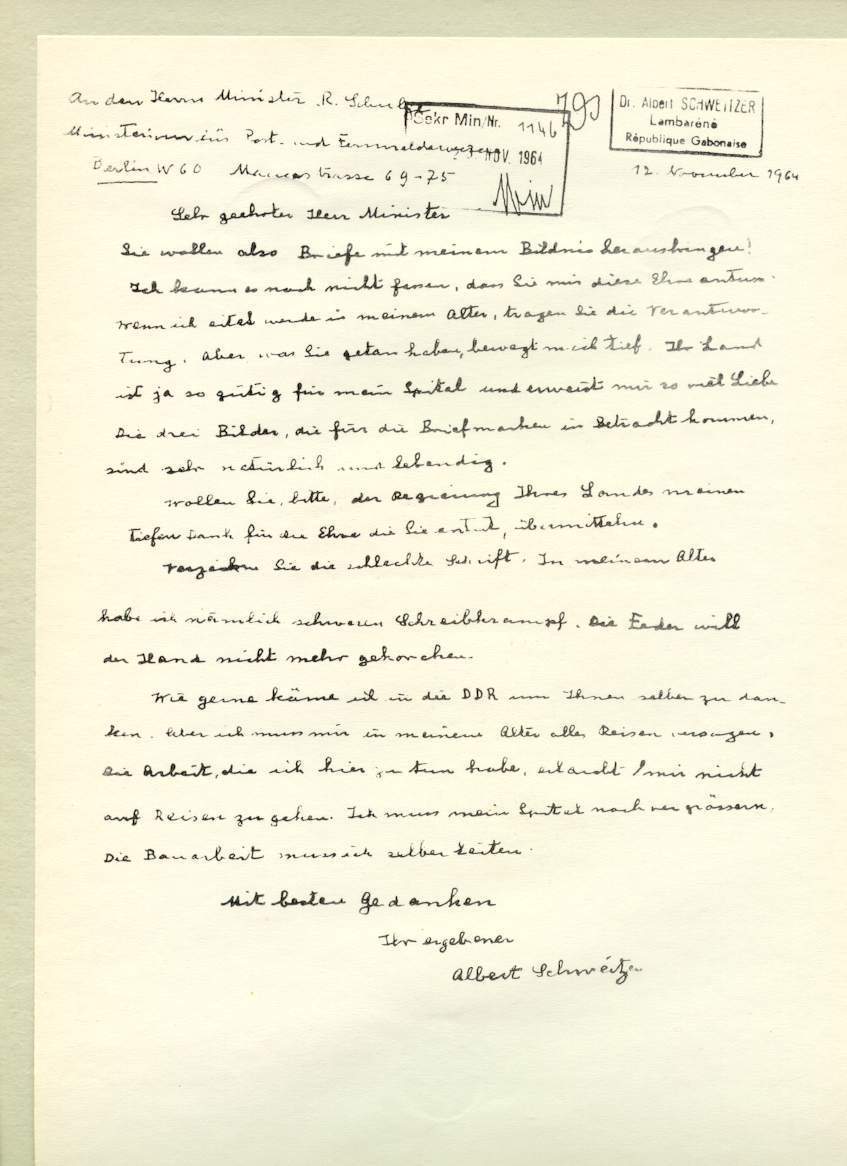 An den Herrn Minister R. Schulze
Ministerium für Post- und Fernmeldewesen
Berlin W 60 Mauerstrasse 69-75
Sekr Min/Nr. 1146
NOV. 1964
Dr. Albert SCHWEITZER
Lambaréné
République Gabonaise
12. November 1964
Sehr geehrter Herr Minister
Sie wollen also Briefe mit meinem Bildnis herausbringen!
Ich kann es noch nicht fassen, dass Sie mir diese Ehre antun.
Wenn ich eitel werde in meinem Alter, tragen Sie die Verantwor-
tung. Aber was Sie getan haben, bewegt mich tief. Ihr Land
ist ja so gütig für mein Spital und erweist mir so viel Liebe
Die drei Bilder, die für die Briefmarken in Betracht kommen,
sind sehr natürlich und lebendig.
Wollen Sie, bitte, der Regierung Ihres Landes meinen
tiefen Dank für die Ehre die Sie antut, übermitteln.
Verzeihen Sie die schlechte Schrift. In meinem Alter
habe ich nämlich schweren Schreibkrampf. Die Feder will
der Hand nicht mehr gehorchen.
Wie gerne käme ich in die DDR um Ihnen selber zu dan-
ken. Aber ich muss mir in meinem Alter alles Reisen versagen.
Die Arbeit, die ich hier zu tun habe, erlaubt mir nicht
auf Reisen zu gehen. Ich muss mein Spital noch vergrössern.
Die Bauarbeit muss ich selber leiten.
Mit besten Gedanken
Ihr ergebener
Albert Schweitzer